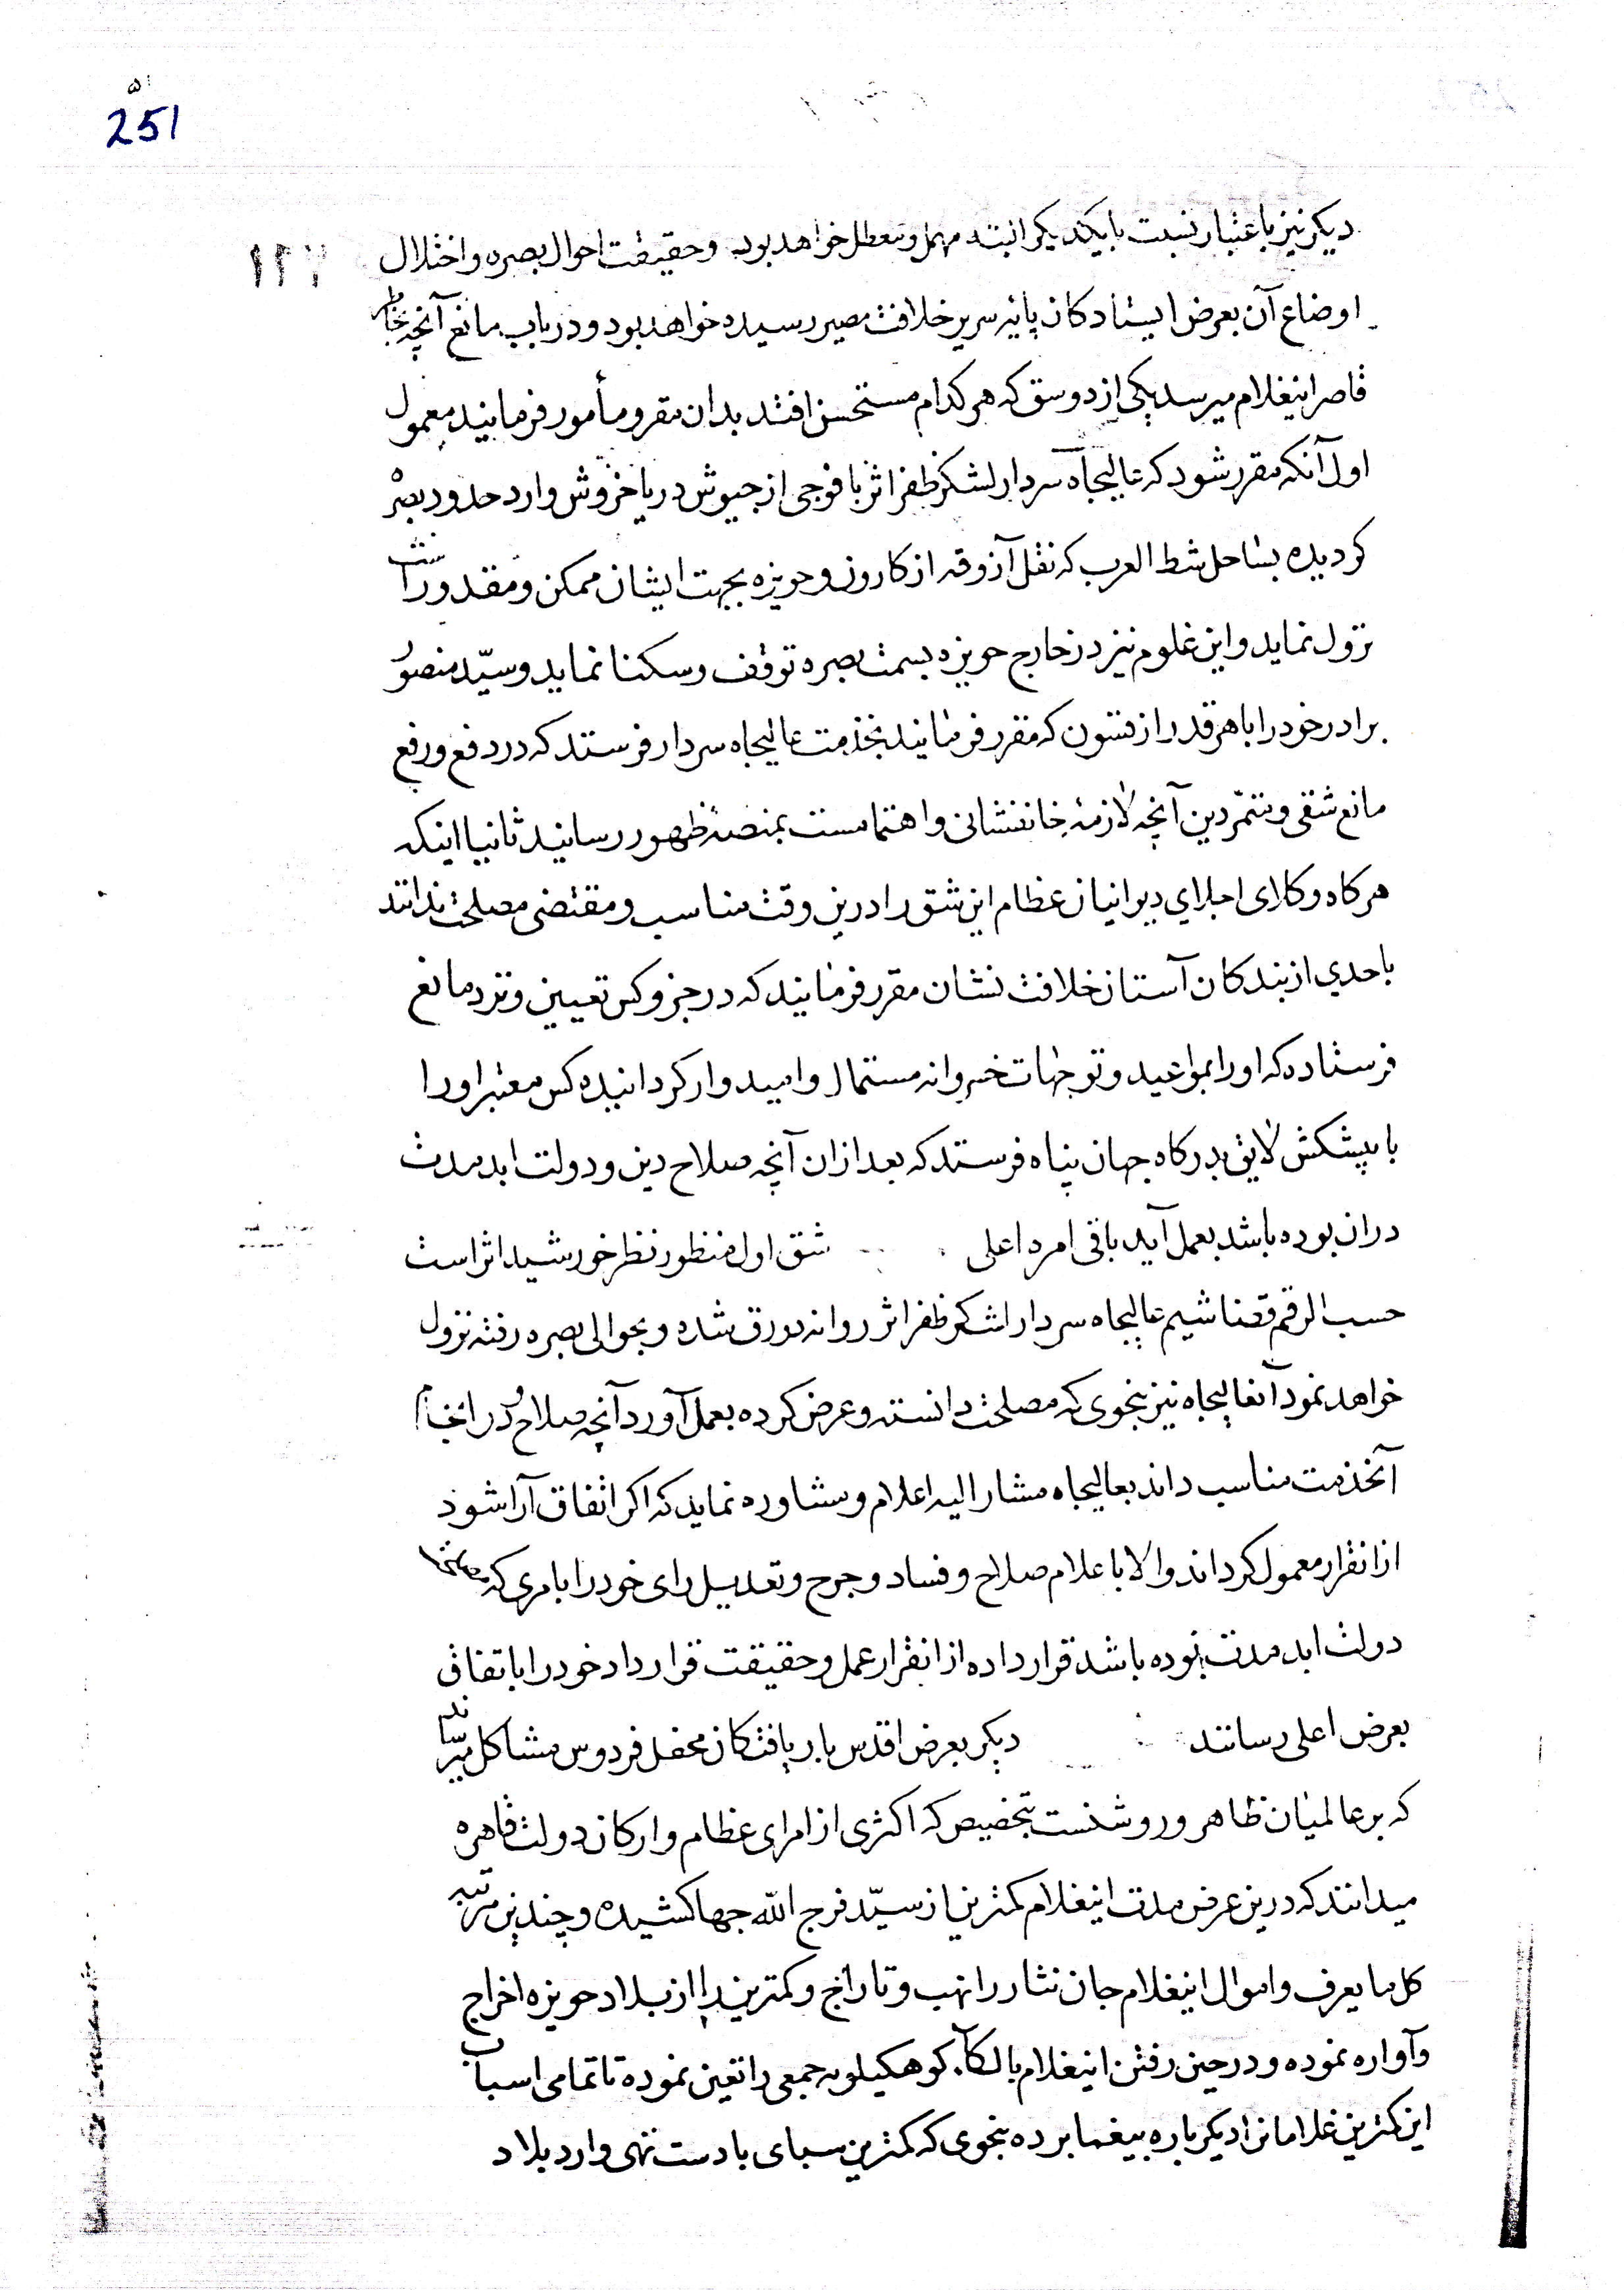 251
دیکر نیز باعتبار نسبت بایکدیکر البته مهمل و معطل خواهد بود و حقیقت احوال بصره و اختلال
اوضاع آن بعرض ایستادکان پایه سریر خلافت مصیر رسیده خواهد بود و در باب مانع آنچه بخاطر
قاصر اینغلام میرسد یکی از دو شق که هر کدام مستحسن افتد بدان مقرر و مأمور فرمایند معمول
اول آنکه مقرر شود که عالیجاه سردار لشکر ظفر اثر با فوجی از جیوش دریا خروش وارد حدود بصره
کردیده بساحل شط العرب که نقل آزوقه از کارون و حویزه بجهت ایشان ممکن و مقدور است
نزول نماید و این غلوم نیز در خارج حویزه بسمت بصره توقف و سکنا نماید و سیّد منصور
برادر خود را با هر قدر از قشون که مقرر فرمایند بخدمت عالیجاه سردار فرستد که در دفع و رفع
مانع شقی و متمرّدین آنچه لازمه جانفشانی و اهتمامست بمنصه ظهور رسانید ثانیا اینکه
هر کاه وکلای اجلای دیوانیان عظام این شق را درین وقت مناسب و مقتضی مصلحت ندانند
باحدی از بندکان آستان خلافت نشان مقرر فرمایند که در جزو کس تعیین و نزد مانع
فرستاده که او را بمواعید و توجهات خسروانه مستمال و امیدوار کردانیده کس معتبر او را
با پیشکش لایق بدرکاه جهان پناه فرستد که بعد از آن آنچه صلاح دین و دولت ابد مدت
دران بوده باشد بعمل آید باقی امره اعلی شق اول منظور نظر خورشید اثر است
حسب الرقم قضا شیم عالیجاه سردار لشکر ظفر اثر روانه دورق شده و بحوالی بصره رفته نزول
خواهد نمود آنعالیجاه نیز بنحوی که مصلحت دانسته و عرض کرده بعمل آورد آنچه صلاح در انجام
آنخدمت مناسب داند بعالیجاه مشار الیه اعلام و مشاوره نماید که اکر اتفاق آرا شود
از انقرار معمول کرداند والا باعلام صلاح و فساد و جرح و تعدیل رای خود را بامری که
دولت ابد مدت بوده باشد قرار داده از انقرار عمل و حقیقت قرار داد خود را باتفاق
بعرض اعلی رسانند دیکر بعرض اقدس بار یافتکان محفل فردوس مشاکل میرساند
که بر عالمیان ظاهر و روشنست بتخصیص که اکثری از امرای عظام و ارکان دولت قاهره
میدانند که درین عرض مدت اینغلام کمترین از سیّد فرج الله جها کشیده و چندین مرتبه
کل ما یعرف و اموال اینغلام جان نثار را نهب و تاراج و کمترین را از بلاد حویزه اخراج
و آواره نموده و در حین رفتن اینغلام بالکآء کوهکیلویه جمعی را تعین نموده تا تمامی اسباب
این کمترین غلامانرا دیکر باره بیغما برده بنحوی که کمترین سبای با دست تهی وارد بلاد